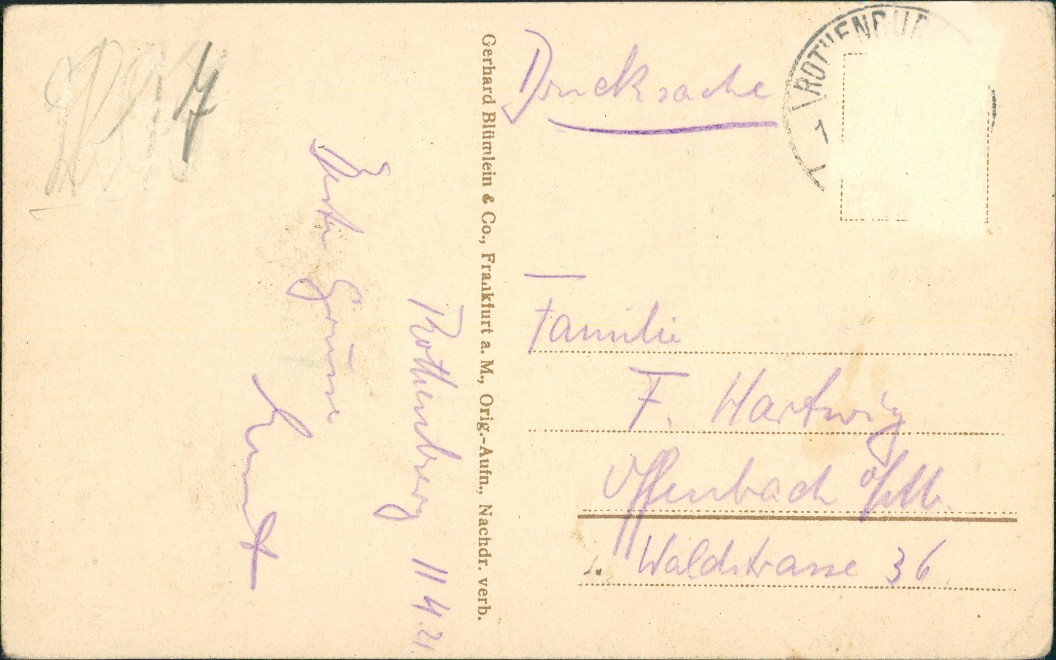 7
Rothenburg 11 4.21.
Beste Grüsse
Gerhard Blümlein & Co., Frankfurt a. M., Orig.-Aufn., Nachdr. verb.
Drucksache
ROTHENBUR
1
Familie
F. Hartwig
Offenbach a/M.
Waldstrasse 36